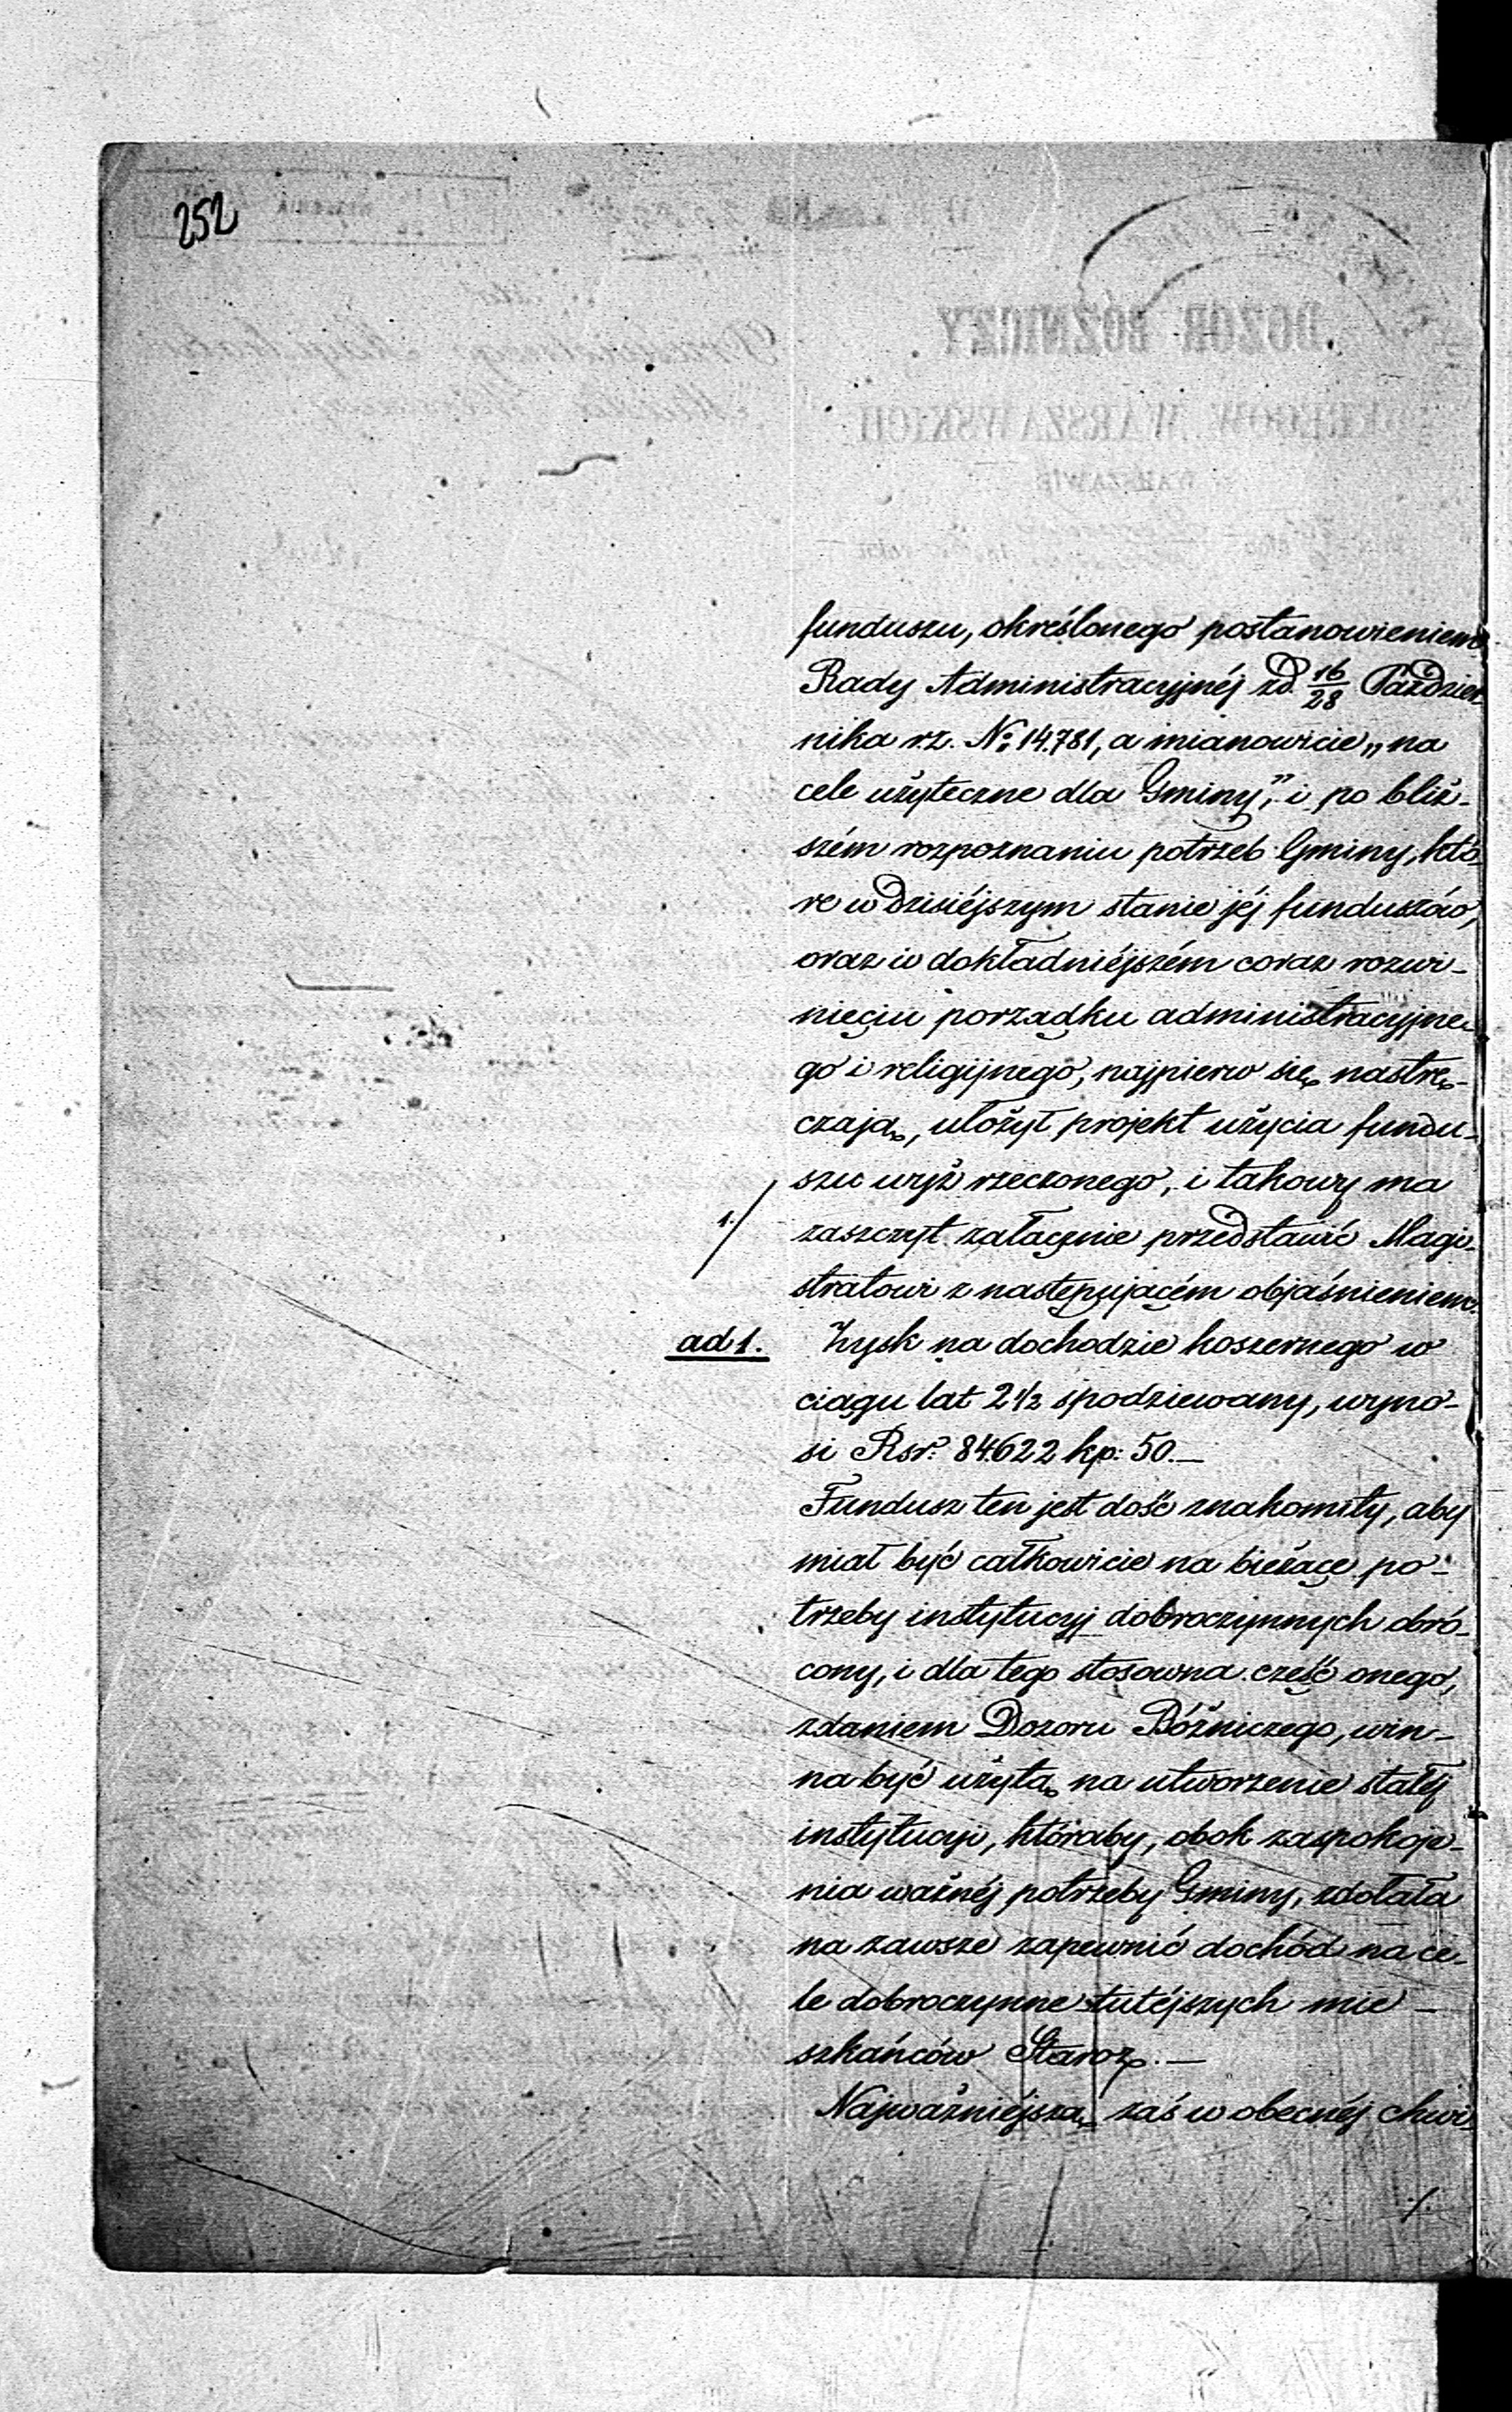 252
funduszu, określonego postanowieniem
Rady Administracyjnéj z d. 16/28 Paździer-
nika r.z. No: 14.781, a mianowicie „na
cele użyteczne dla Gminy”, i po bliż-
szém rozpoznaniu potrzeb Gminy, któ-
re w dzisiéjszym stanie jéj funduszów,
oraz w dokładniéjszém coraz rozwi-
nięciu porządku administracyjne-
go i religijnego, najpierw się nastrę-
czają, ułożył projekt użycia fundu-
szu wyż rzeczonego, i takowy ma
1./ zaszczyt załącznie przedstawić Magi-
stratowi z następującém objaśnieniem.
ad 1. Zysk na dochodzie koszernego w
ciągu lat 2 1/2 spodziewany, wyno-
si Rsr: 84622 kp: 50.—
Fundusz ten jest dość znakomity, aby
miał być całkowicie na bieżące po-
trzeby instytucyj dobroczynnych obró-
cony, i dla tego stosowna część onego,
zdaniem Dozoru Bóżniczego, win-
na być użytą na utworzenie stałéj
instytucyi, któraby, obok zaspokoje-
nia ważnéj potrzeby Gminy, zdołała
na zawsze zapewnić dochód na ce-
le dobroczynne tutéjszych mie-
szkańców Staroz.—
Najważniéjszą zaś w obecnéj chwi-
./.